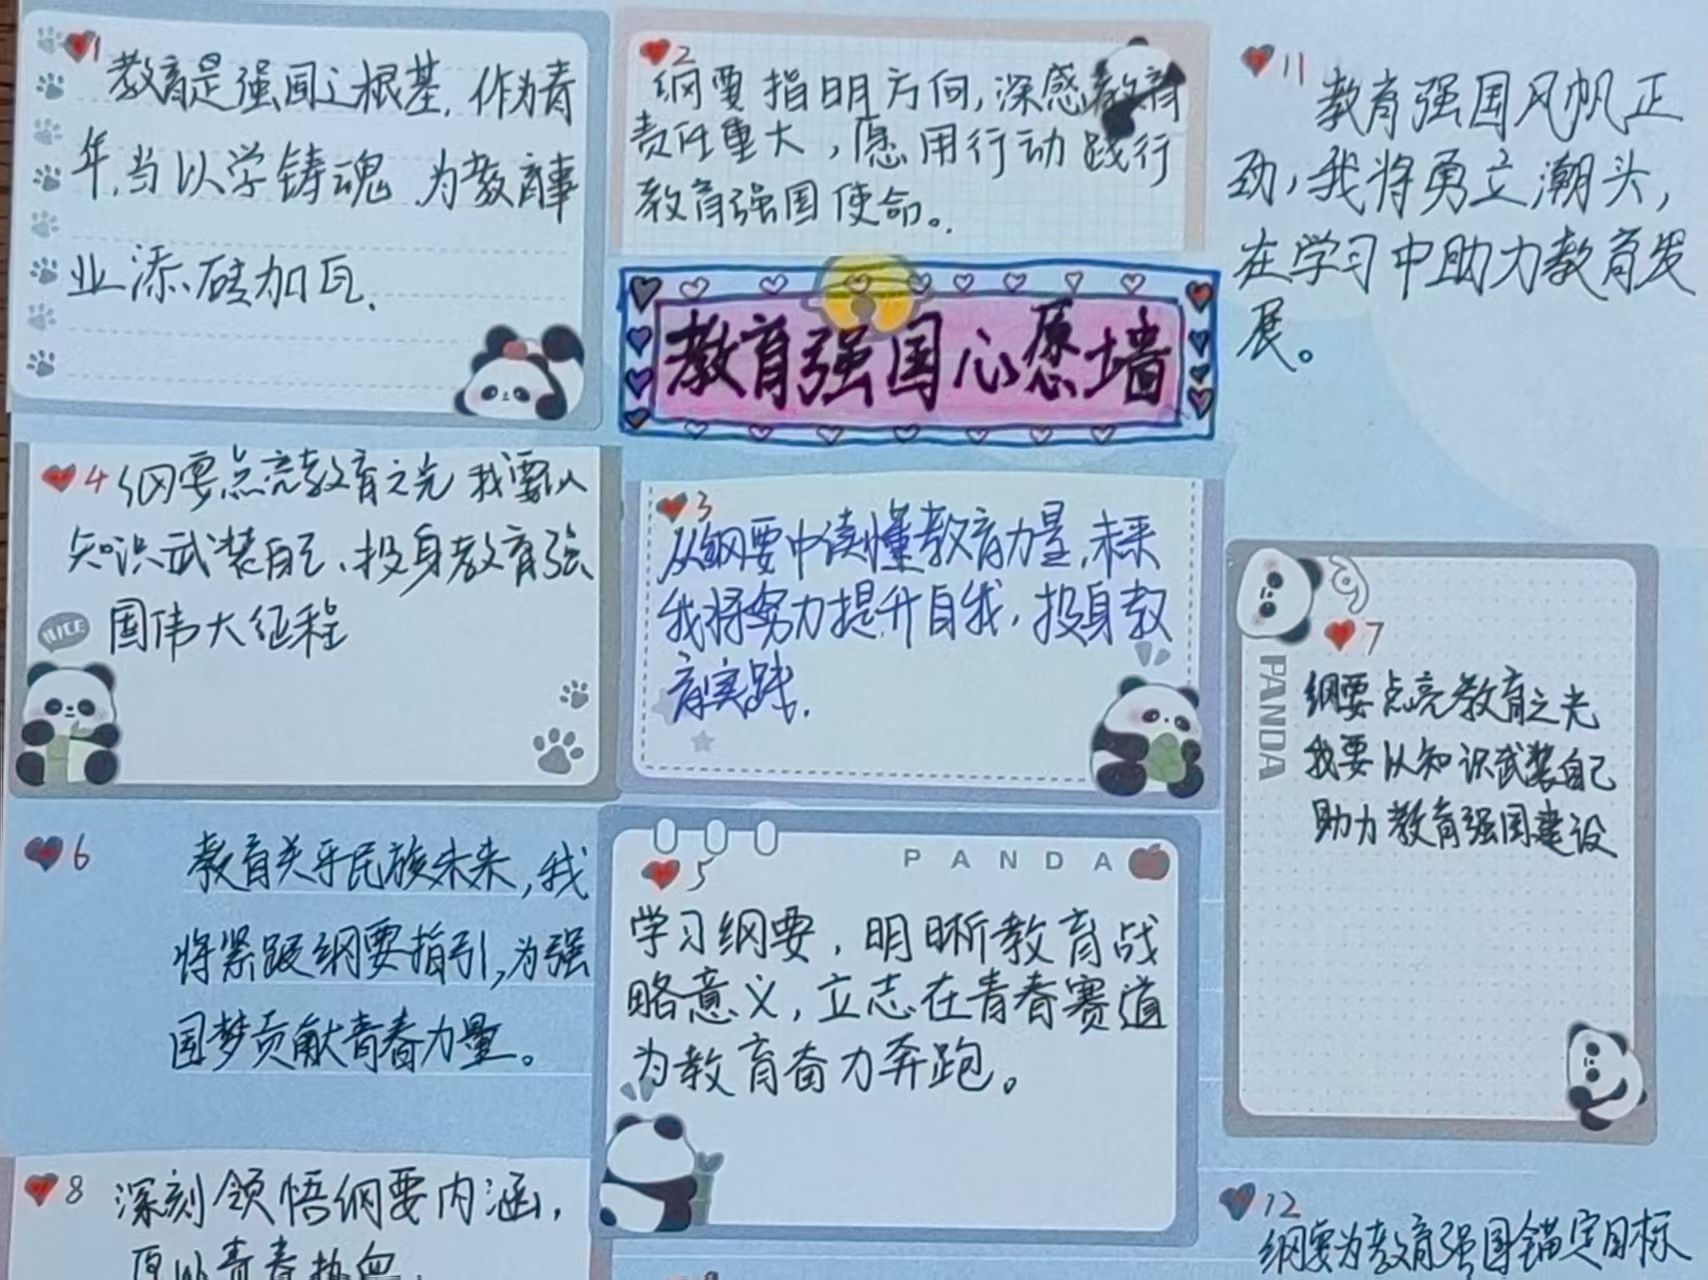 1
教育是强国之根基,作为青
年,当以学铸魂 为教育事
业添砖加瓦.
2
纲要指明方向,深感教育
责任重大,愿用行动践行
教育强国使命。
11
教育强国风帆正
劲,我将勇立潮头,
在学习中助力教育发
展。
教育强国心愿墙
4
纲要点亮教育之光 我要以
知识武装自己、投身教育强
国伟大征程
NICE
3
从纲要中读懂教育力量,未来
我将努力提升自我,投身教
育实践.
7
PANDA
纲要点亮教育之光
我要以知识武装自己
助力教育强国建设
6
教育关乎民族未来,我
将紧跟纲要指引,为强
国梦贡献青春力量。
PANDA
5
学习纲要,明晰教育战
略意义,立志在青春赛道
为教育奋力奔跑。
8
深刻领悟纲要内涵,
12
纲要为教育强国锚定目标